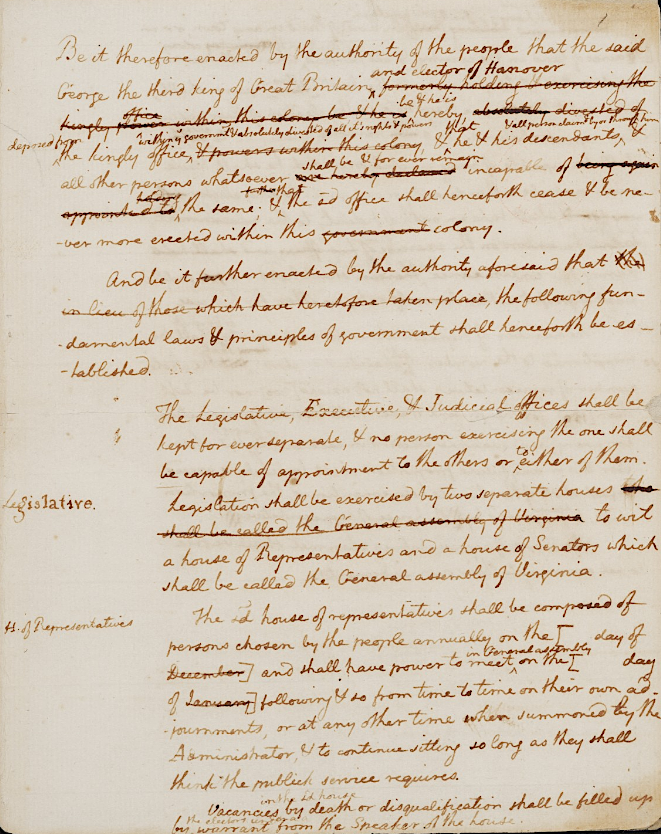 Be it therefore enacted by the authority of the people that the said
and elector of Hanover
George the third king of Great Britain, formerly holding & exercising the
office be & he is
kingly power within this colony be & he is hereby absolutely divested of
deposed from within ys government & absolutely divested of all it's rights & powers that & all persons claiming by or through him
the kingly office, & powers within this colony, & he & his descendants, &
shall be & for ever remain
all other persons whatsoever are hereby declared incapable of being again
that
appointed to the same: & the sd office shall henceforth cease & be ne-
-ver more erected within this government colony.
And be it further enacted by the authority aforesaid that the
in lieu of those which have heretofore taken place, the following fun-
-damental laws & principles of government shall henceforth be es-
-tablished.
The Legislative, Executive, & Judicial offices shall be
kept for ever separate, & no person exercising the one shall
to
be capable of appointment to the others or either of them.
Legislative.
Legislation shall be exercised by two separate houses who
shall be called the General assembly of Virginia to wit
a house of Representatives and a house of Senators which
shall be called the General assembly of Virginia.
H. of Representatives
The sd house of representatives shall be composed of
persons chosen by the people annually on the [ day of
in General assembly
December] and shall have power to meet, on the [ day
of January] following & so from time to time on their own ad-
-journments, or at any other time when summoned by the
Administrator, & to continue sitting so long as they shall
think the publick service requires.
in the sd house
Vacancies by death or disqualification shall be filled up
by warrant from the Speaker of the house.